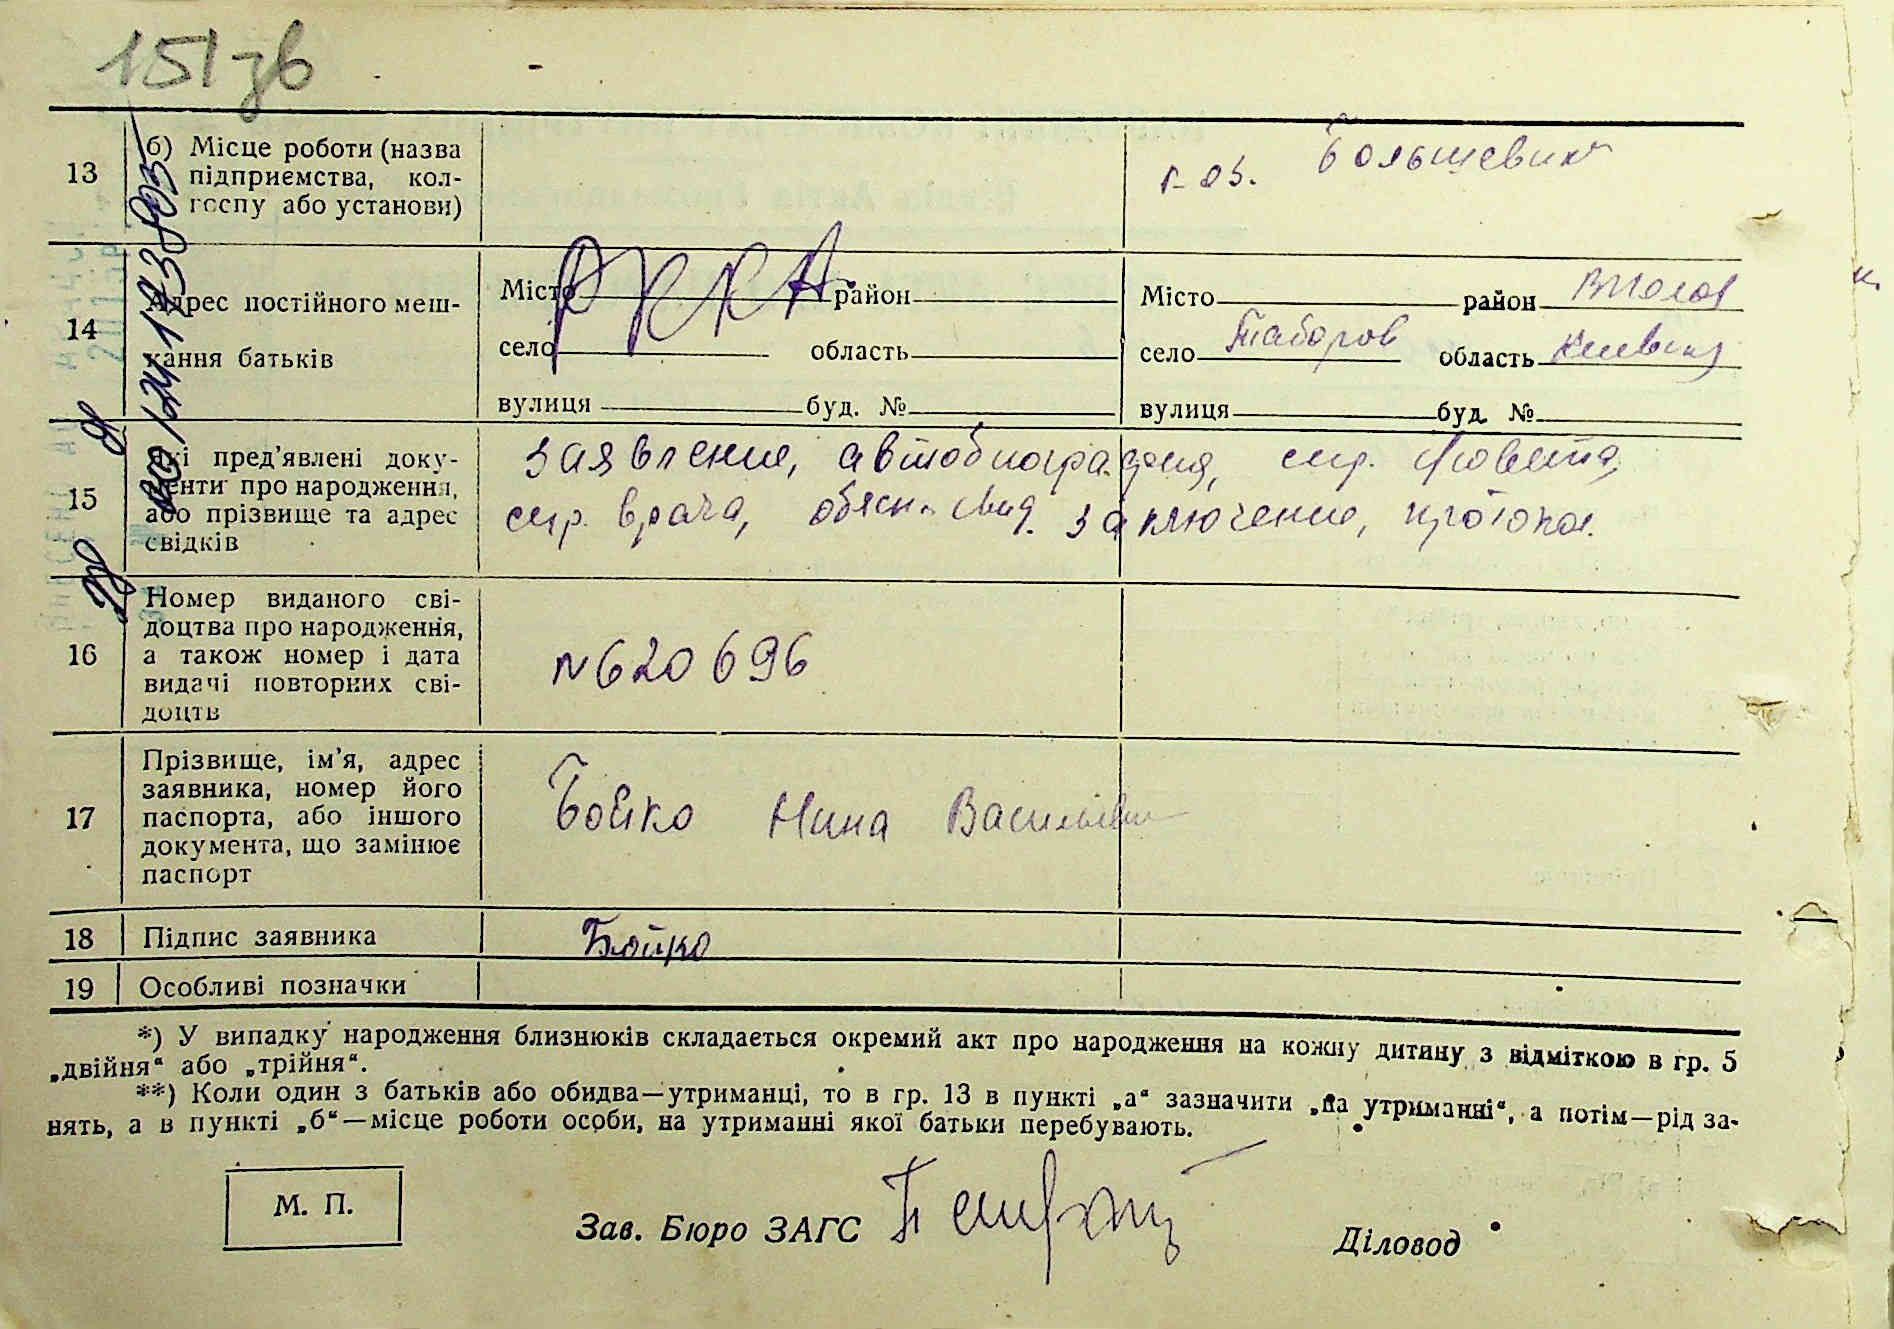 151 зв
13
б) Місце роботи (назва
підприємства, кол-
госпу або установи)
Большевик
14
Адрес постійного меш-
кання батьків
РККА
Місто район
село область
вулиця буд. №
Місто район
село Таборов область Киевская
вулиця буд. №
15
Які пред'явлені доку-
менти про народження,
або прізвище та адрес
свідків
заявление, автобиография, спр. с/совета,
спр. врача, обясн. свид. заключение, протокол.
16
Номер виданого сві-
доцтва про народження,
а також номер і дата
видачі повторних сві-
доцтв
N 620696
17
Прізвище, ім'я, адрес
заявника, номер його
паспорта, або іншого
документа, що замінює
паспорт
Бойко Нина Васильевн
18 Підпис заявника Бойко
19 Особливі позначки
*) У випадку народження близнюків складається окремий акт про народження на кожну дитину з відміткою в гр. 5
„двійня“ або „трійня“.
**) Коли один з батьків або обидва—утриманці, то в гр. 13 в пункті „а“ зазначити „на утриманні“, а потім—рід за-
нять, а в пункті „б“—місце роботи особи, на утриманні якої батьки перебувають.
М. П.
Зав. Бюро ЗАГС
Діловод